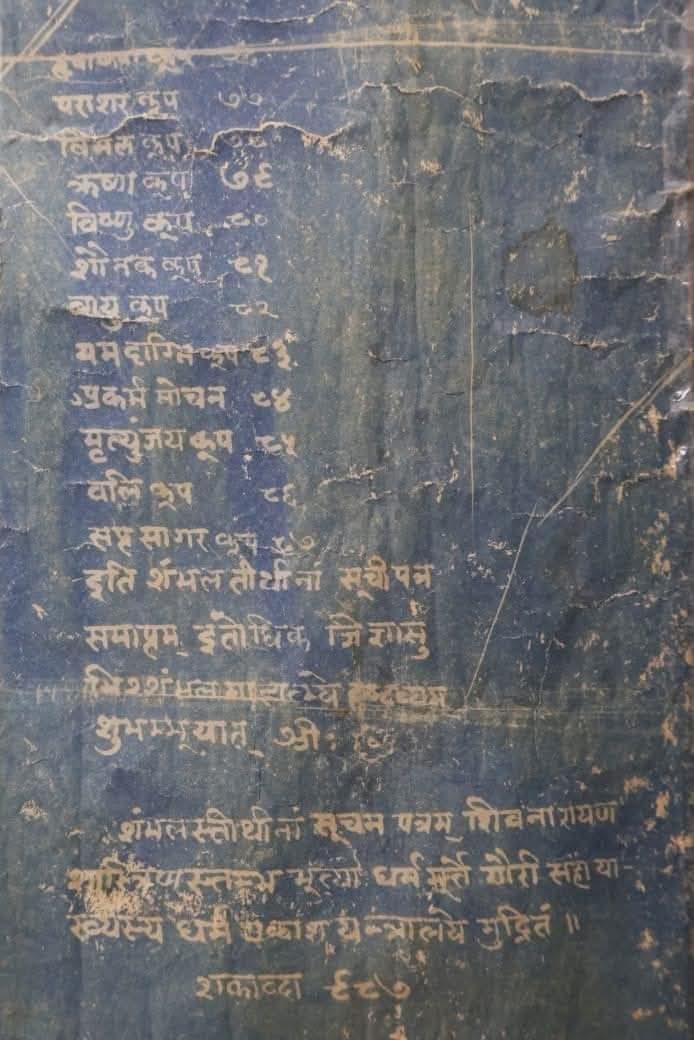 पराशर कूप ७७
विमल कूप
ऋष्णा कूप ७९
विष्णु कूप ८०
शौनक कूप ८१
वायु कूप ८२
यमदाग्नि कूप ८३
प्रकर्म मोचन ८४
मृत्युंजय कूप ८५
वलि कूप ८६
सप्त सागर कूप ८७
इति शंभल तीर्थानां सूचीपत्र
समाप्तम् इतोधिक जिज्ञासु
भिश्शंभल
शुभम्भूयात् श्रीः
शंभलस्तीर्थानां सूचन पत्रम् शिवनारायण
धर्म मूर्ते गौरी सहाया
ख्यस्य धर्म प्रकाश यन्त्रालये मुद्रितं ॥
शकाव्दा ९८७